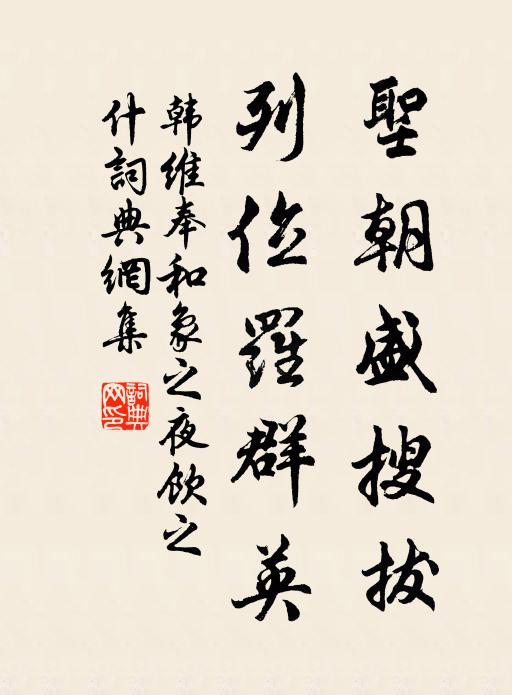 聖朝盛搜拔
列位羅群英
韩维奉和象之夜飲之
什詞典網集
詞典网印